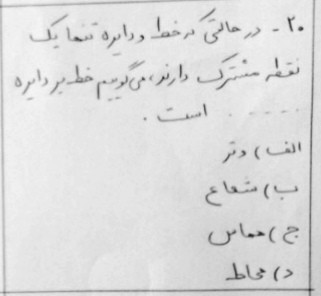 ۲۰- در حالتی که خط و دایره تنها یک
نقطه مشترک دارند، می‌گوییم خط بر دایره
..... است.
الف) وتر
ب) شعاع
ج) مماس
د) محاط